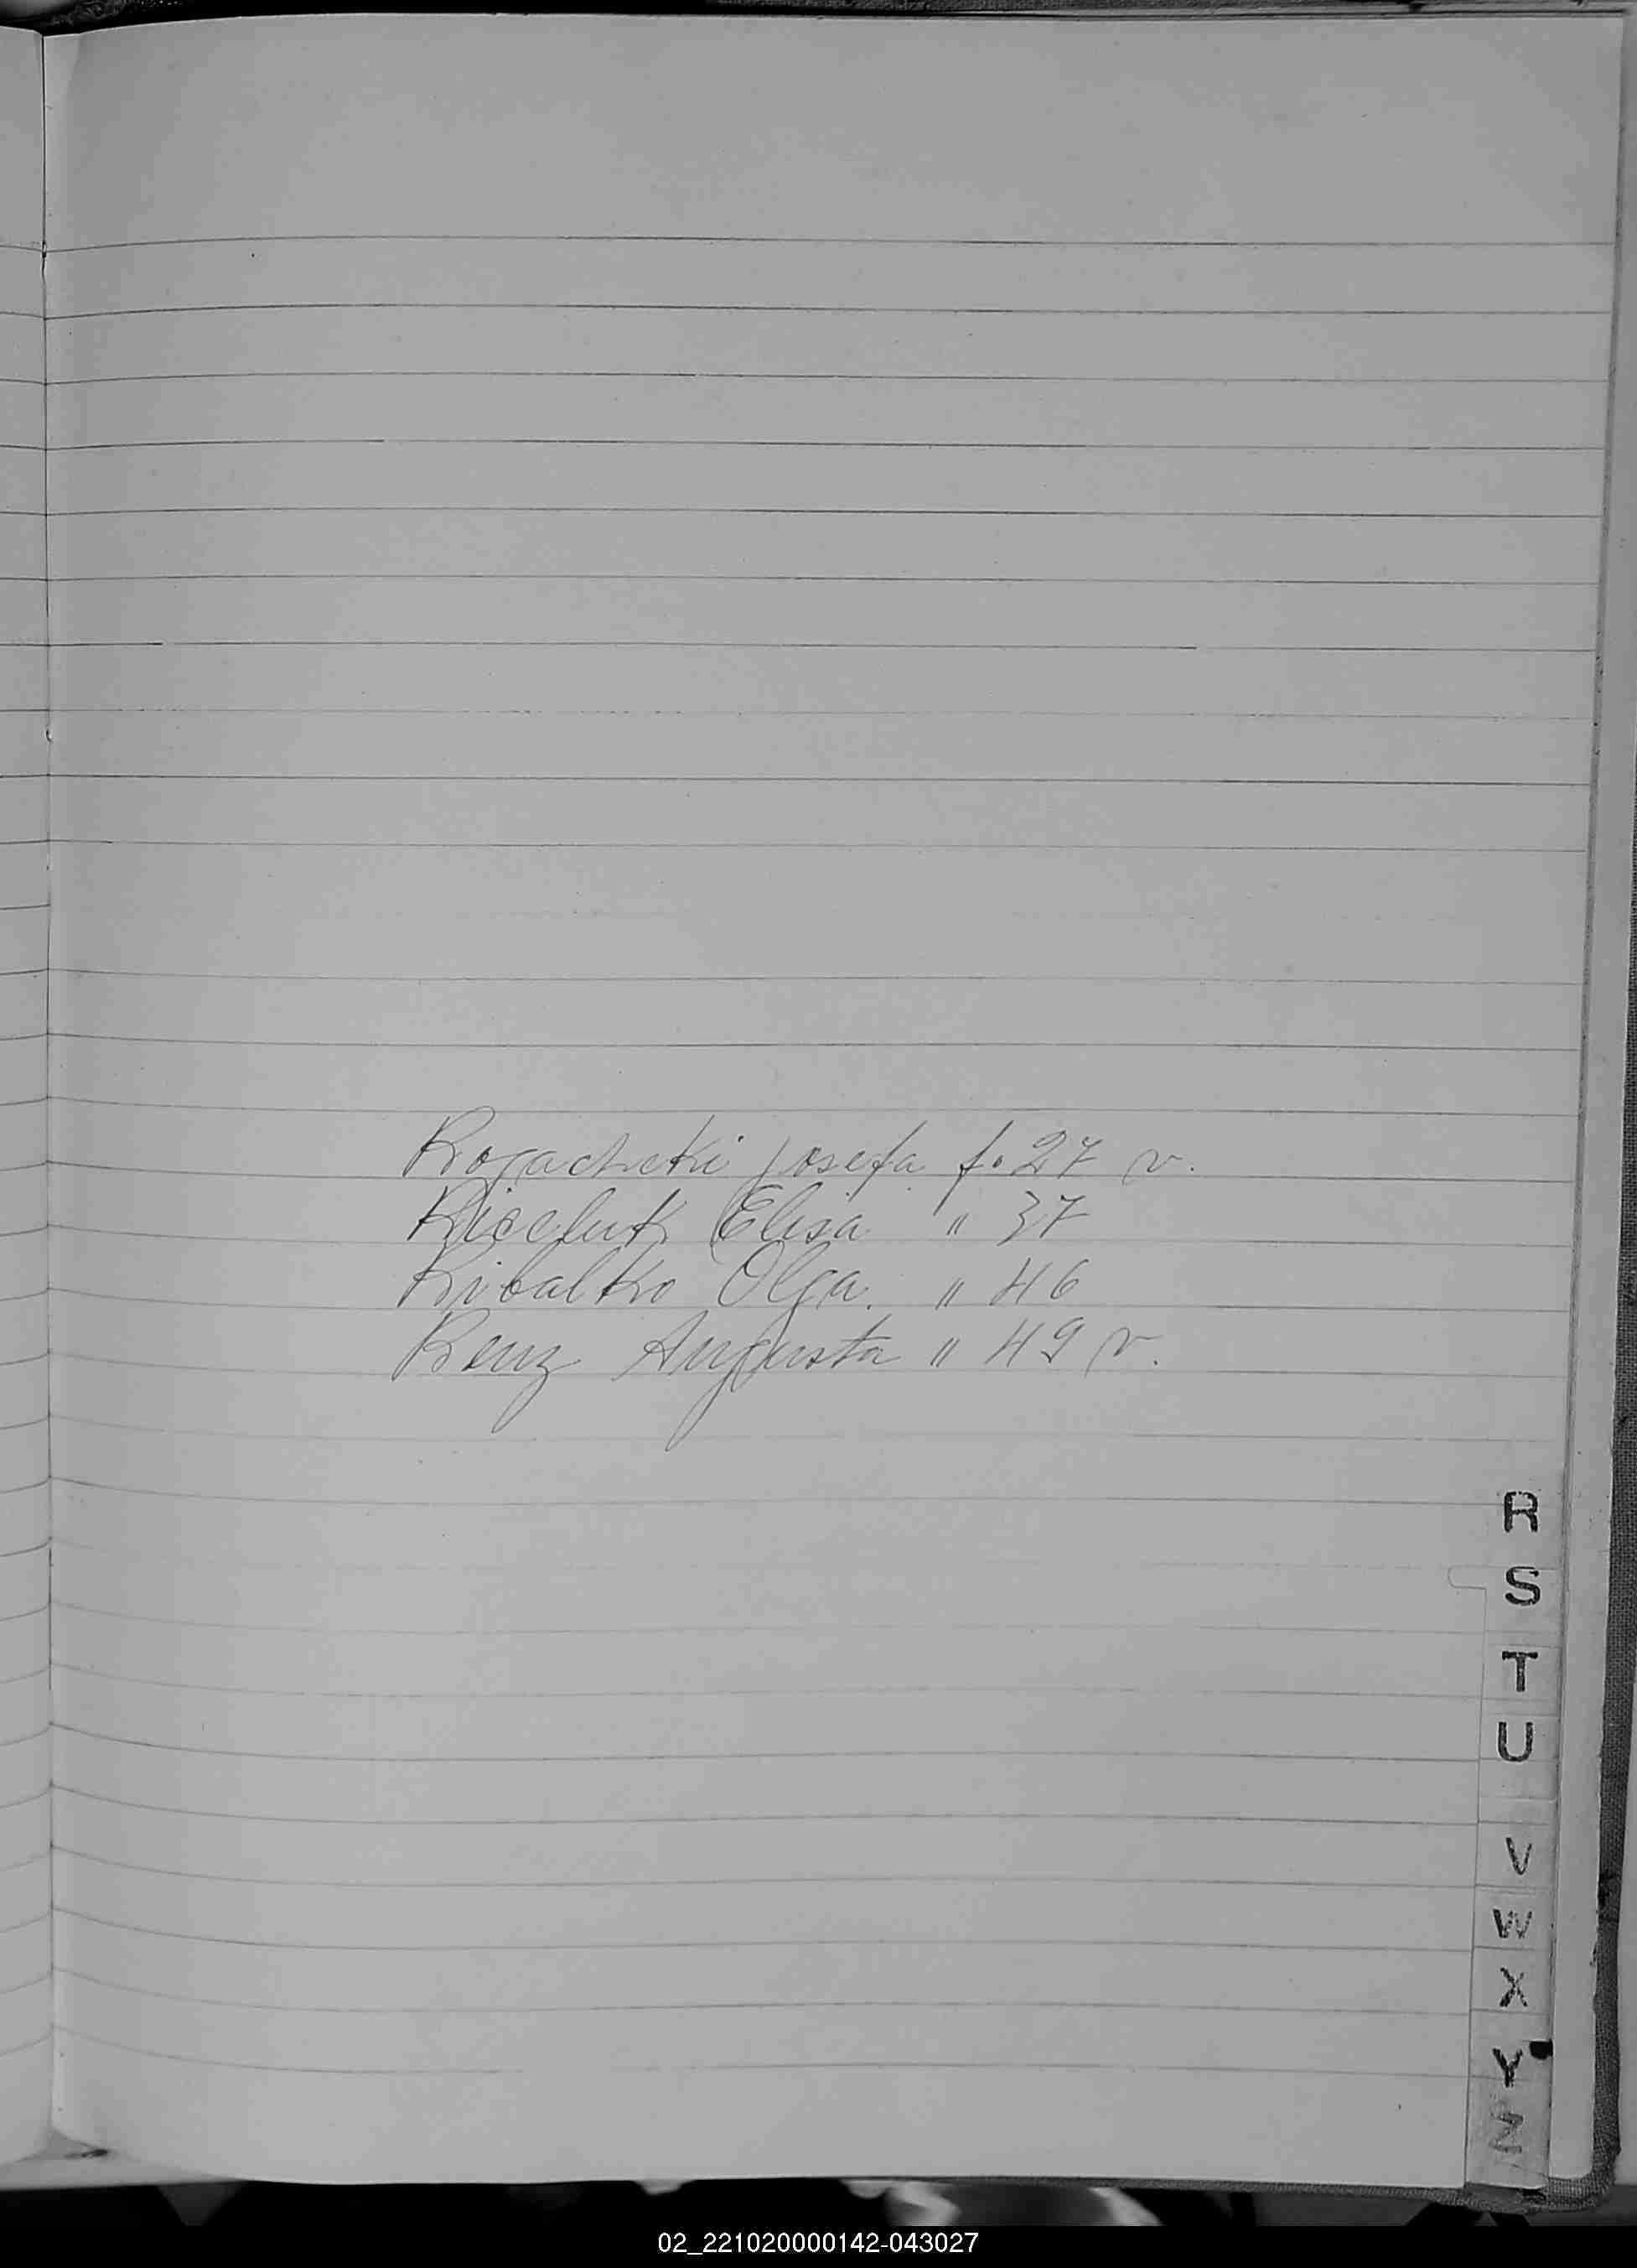 Rogacheki Josefa f. 27 v.
Riceluk Elisa " 37
Ribalko Olga. " 46
Renz Augusta " 49 v.
R
S
T
U
V
W
X
Y
Z
02_221020000142-043027